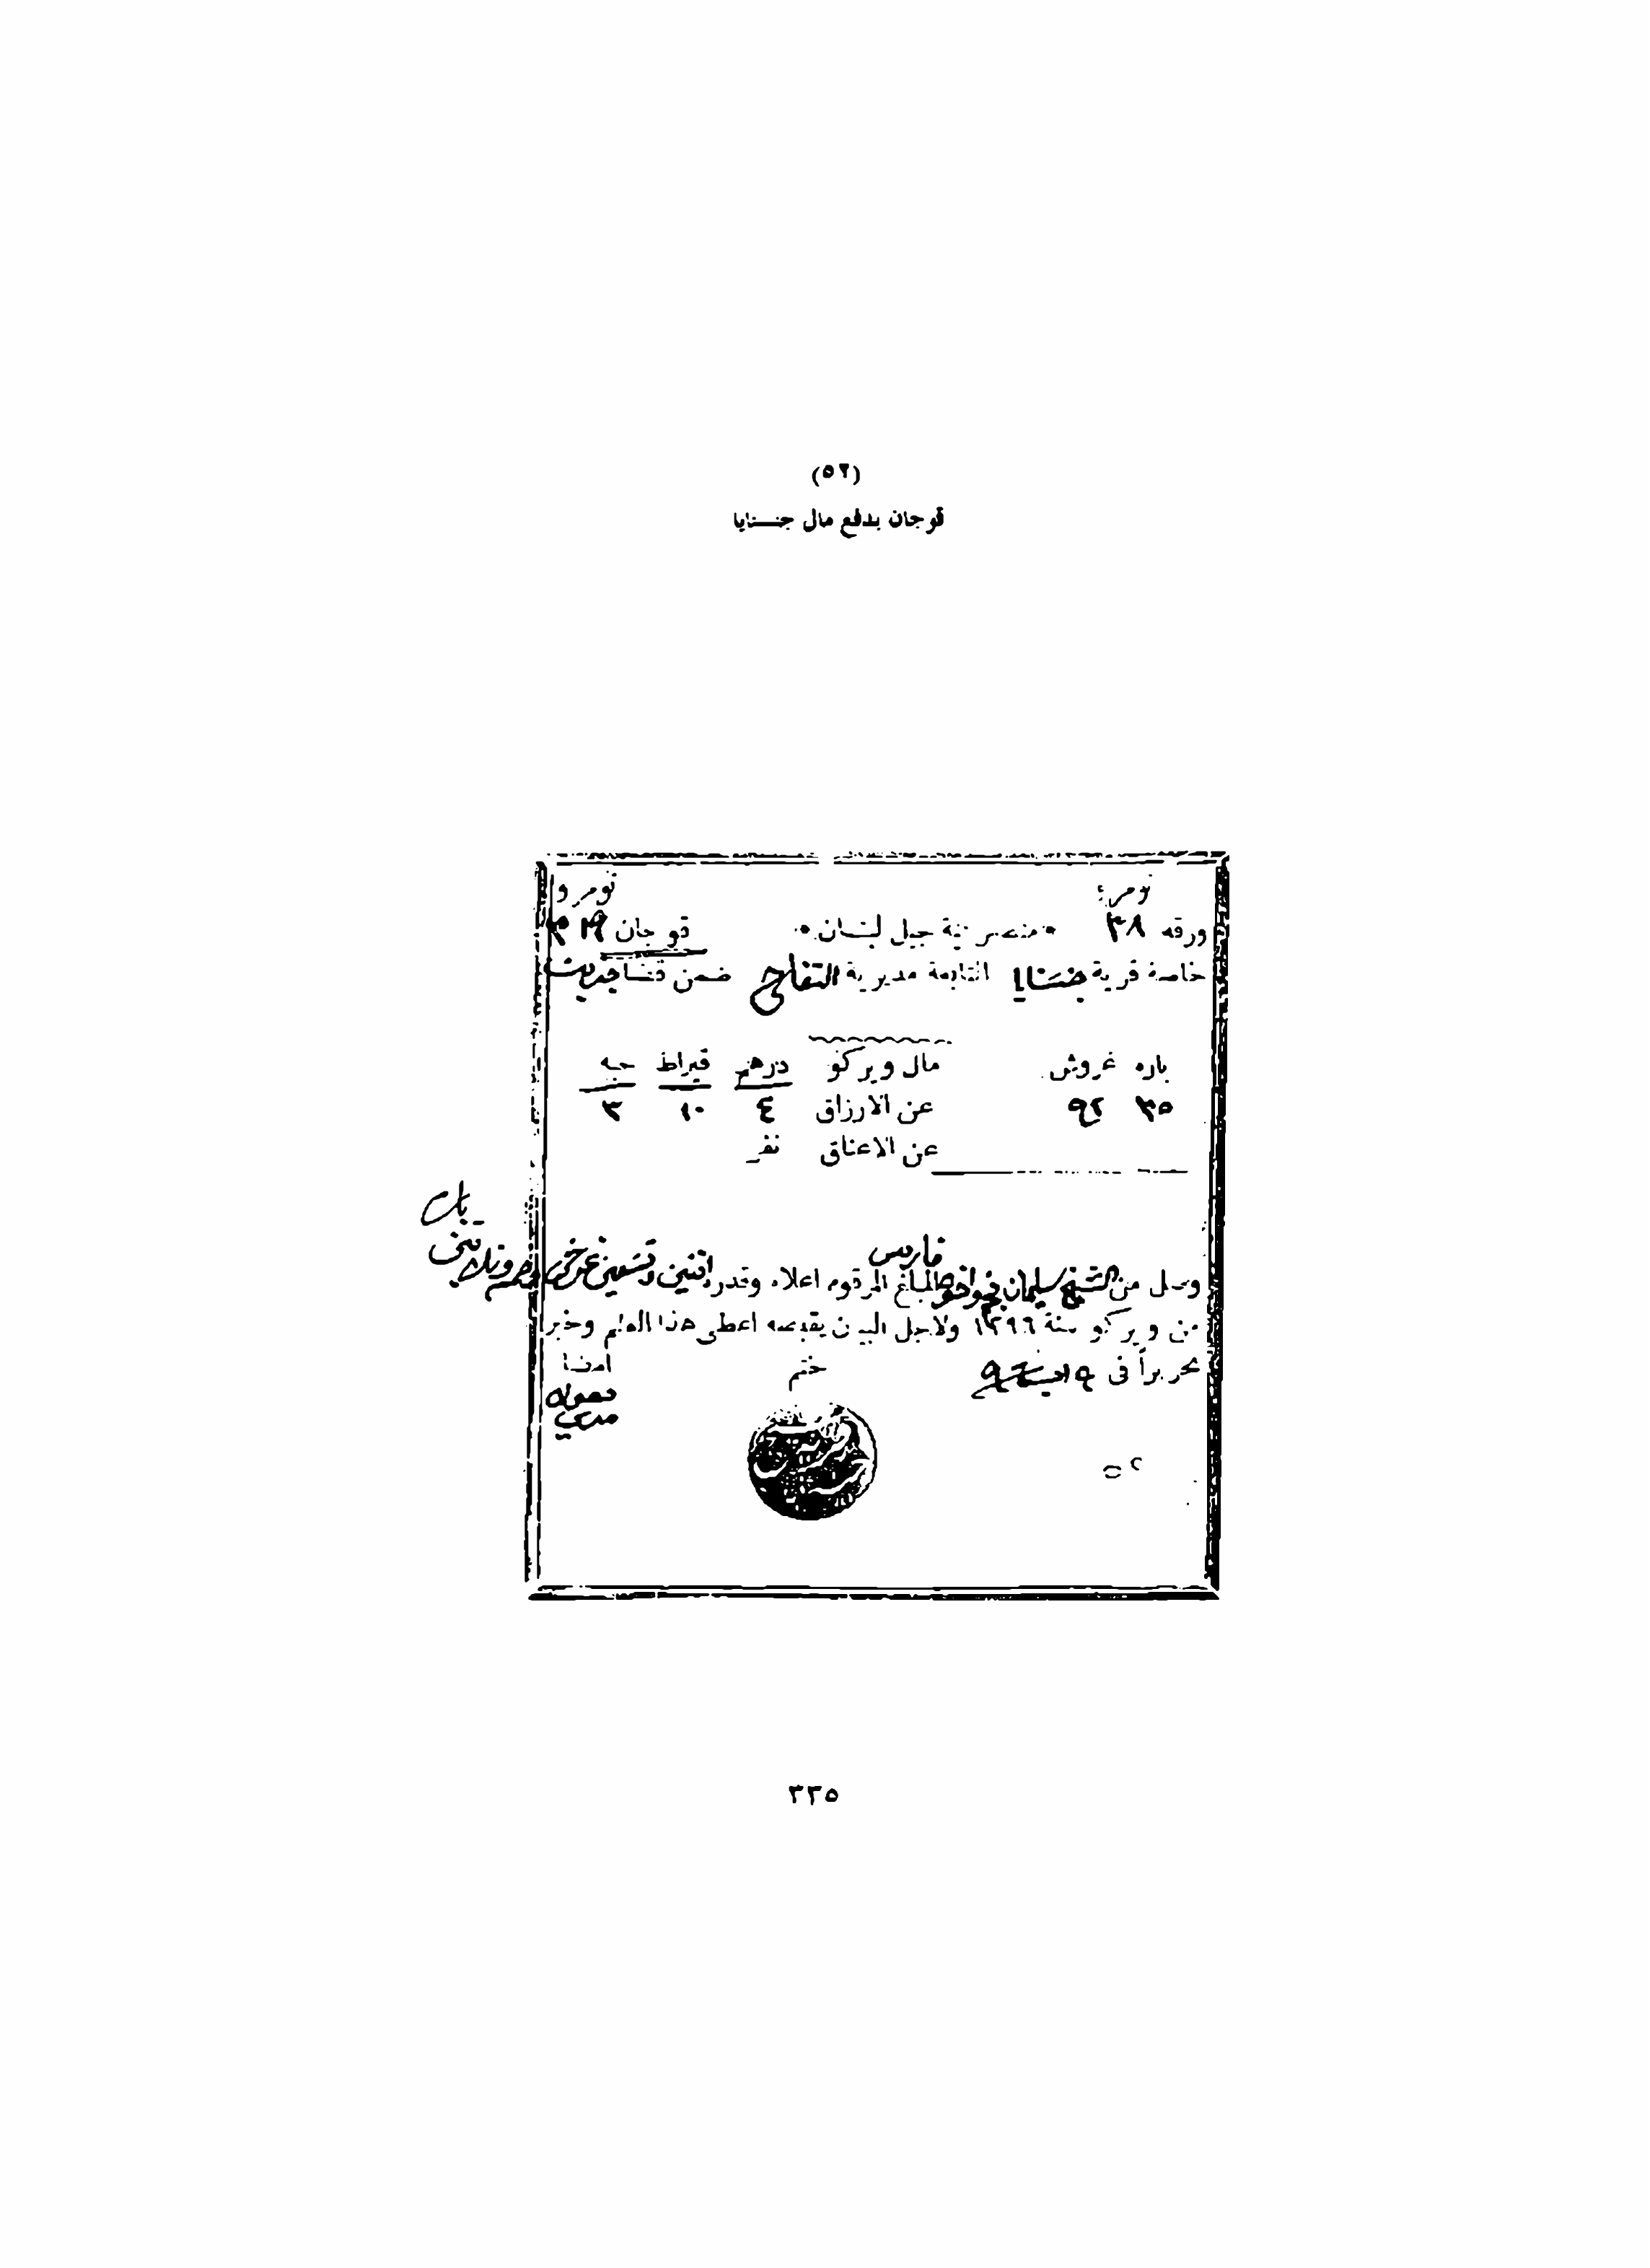 (٥٢)
قوجان بدفع مال جنسنايا
نومرو نومرو
ورقه ٣٨ • متصرفية جبل لبنان • قوجان
خاصة قرية جنسنايا التابعة مديرية التفاح ضمن قضا جزين
باره غروش مال ويركو درهم قيراط حبه
٣٥ ٩٢ عن الارزاق ٤ ١٠ ٣
عن الاعناق نفر
باره
فارس
وصل من الشيخ سليمان المبلغ المرقوم اعلاه وقدره اثنين وتسعين غرش
من ويركو سنة ١٢٩٦ ولاجل البيان بقبضه اعطى هذا العلم وخبر
تحريراً فى ختم امضا
٣٣٥